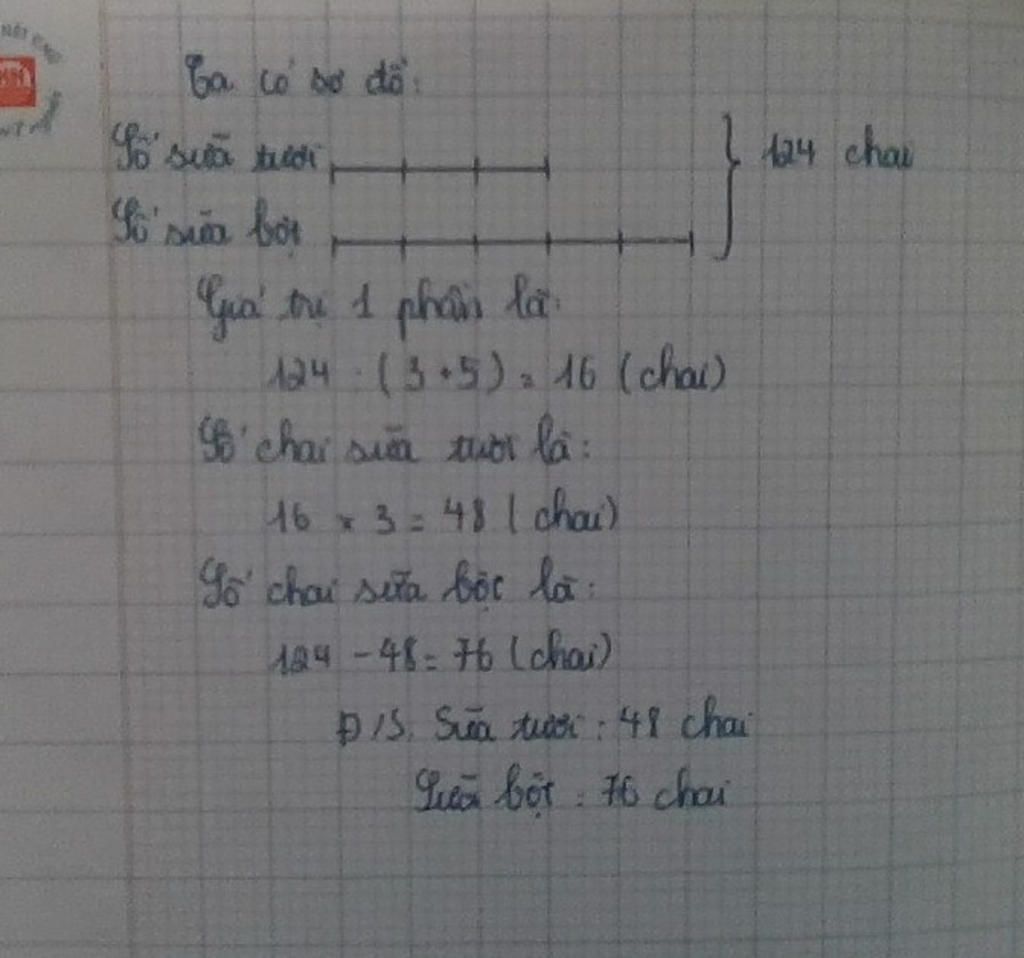 Ta có sơ đồ:
Số sữa tươi
124 chai
Số sữa bột
Giá trị 1 phần là:
124 : (3+5) = 16 (chai)
Số chai sữa tươi là:
16 x 3 = 48 (chai)
Số chai sữa bột là:
124 - 48 = 76 (chai)
Đ/S: Sữa tươi: 48 chai
Sữa bột: 76 chai